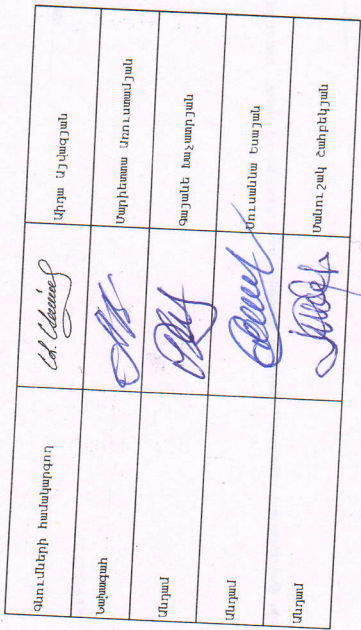 Գնումների համակարգող Աիդա Այվազյան
Նախագահ Մարիետա Առուստամյան
Անդամ Գայանե Խաչատրյան
Անդամ Սուսաննա Եսայան
Անդամ Մանուշակ Շահբեկյան